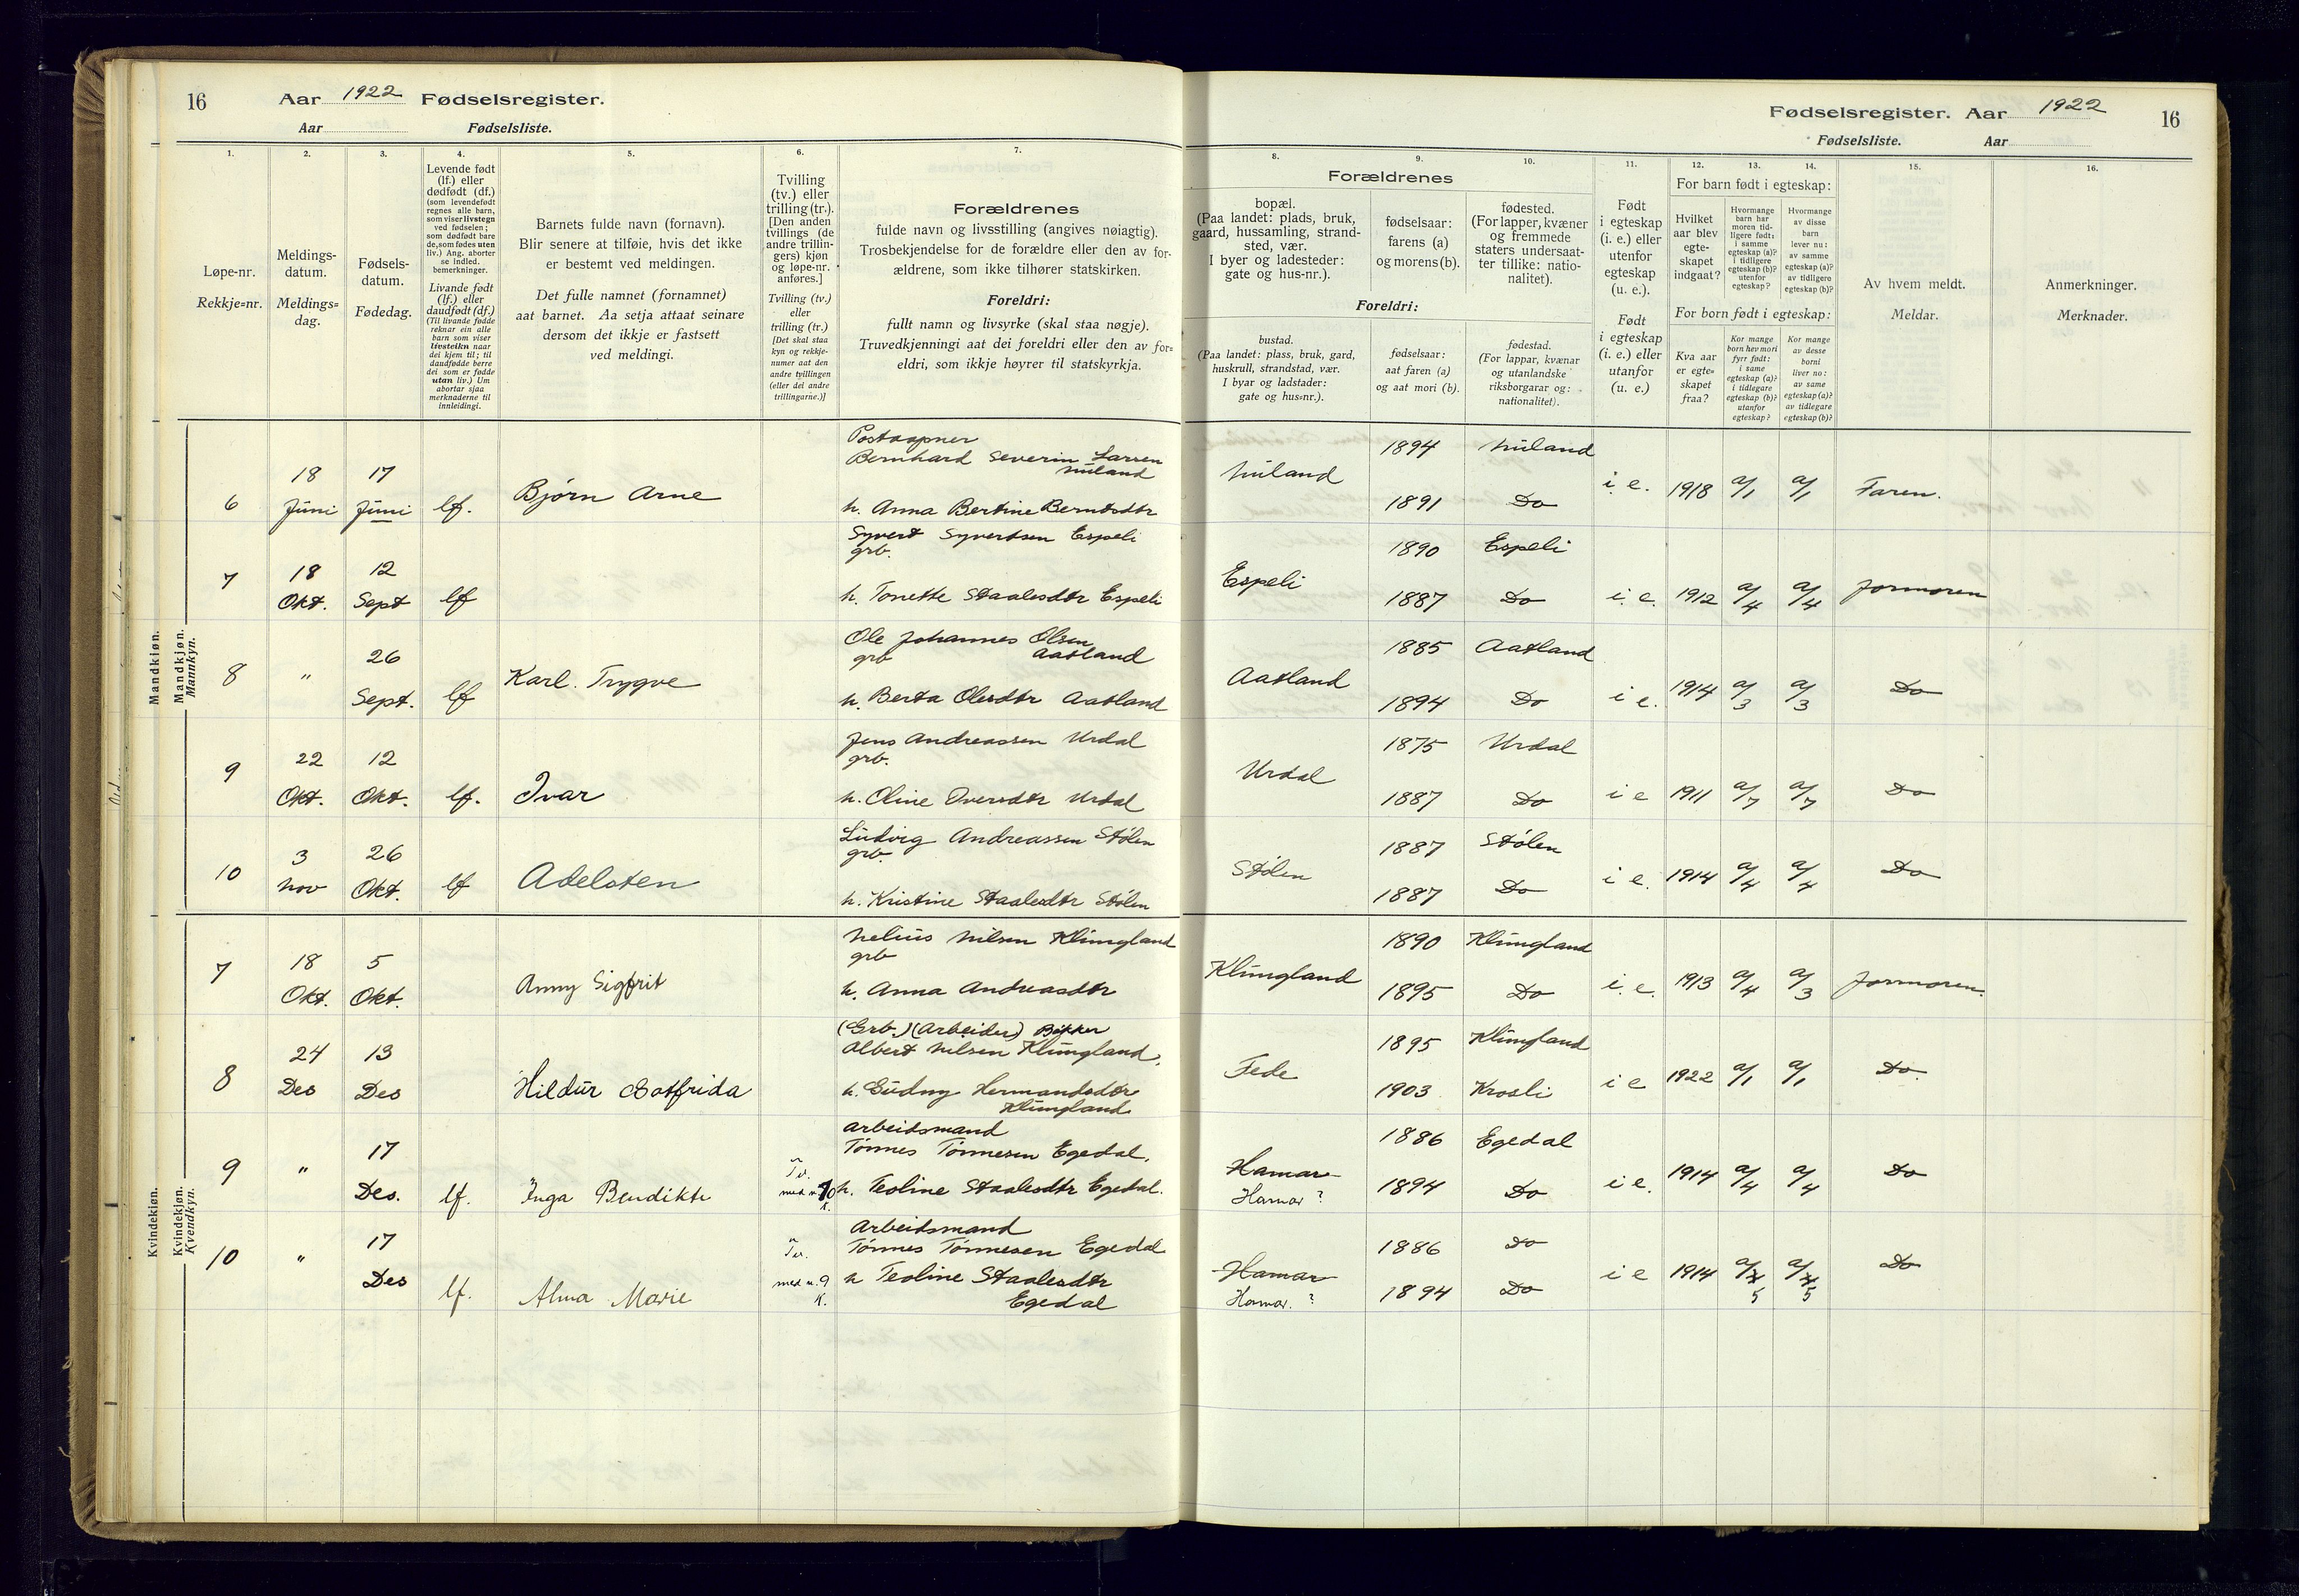 16 Aar 1922 Fødselsregister.
Aar Fødselsliste.
Fødselsregister. Aar 1922 16
Fødselsliste. Aar
1.
Løpe-nr.
Rekkje=nr.
2.
Meldings-
datum.
Meldings=
dag.
3.
Fødsels-
datum.
Fødedag.
4.
Levende født
(lf.) eller
dødfødt (df.)
(som levendefødt
regnes alle barn,
som viser livstegn
ved fødselen;
som dødfødt bare
de, som fødes uten
liv.) Ang. aborter
se indled.
bemerkninger.
Livande født
(lf.) eller
daudfødt (df.)
(Til livande fødde
reknar ein alle
barn som viser
livsteikn naar
dei kjem til; til
daudfødde berre
dei som er fødde
utan liv.) Um
abortar sjaa
merknaderne til
innleidingi.
5.
Barnets fulde navn (fornavn).
Blir senere at tilføie, hvis det ikke
er bestemt ved meldingen.
Det fulle namnet (fornamnet)
aat barnet. Aa setja attaat seinare
dersom det ikkje er fastsett
ved meldingi.
6.
Tvilling
(tv.) eller
trilling (tr.).
[Den anden
tvillings (de
andre trillin-
gers) kjøn
og løpe-nr.
anføres.]
Tvilling (tv.)
eller
trilling (tr.)
[Det skal staa
kyn og rekkje-
numer aat den
andre tvillingen
(eller dei andre
trillingarne.)]
7.
Forældrenes
fulde navn og livsstilling (angives nøiagtig).
Trosbekjendelse for de forældre eller den av for-
ældrene, som ikke tilhører statskirken.
Foreldri:
fullt namn og livsyrke (skal staa nøgje).
Truvedkjenningi aat dei foreldri eller den av for=
eldri, som ikkje høyrer til statskyrkja.
Forældrenes
8.
bopæl.
(Paa landet: plads, bruk,
gaard, hussamling, strand-
sted, vær.
I byer og ladesteder:
gate og hus-nr.).
9.
fødselsaar:
farens (a)
og morens (b).
10.
fødested.
(For lapper, kvæner
og fremmede
staters undersaat-
ter tillike: natio-
nalitet).
Foreldri:
bustad.
(Paa landet: plass, bruk, gard,
huskrull, strandstad, vær.
I byar og ladstader:
gate og hus=nr.).
fødselsaar:
aat faren (a)
og aat mori (b).
fødestad.
(For lappar, kvænar
og utanlandske
riksborgarar og:
nationalitet).
11.
Født
i egteskap
(i. e.) eller
utenfor
egteskap
(u. e.).
Født
i egteskap
(i. e.) eller
utanfor
(u. e.)
For barn født i egteskap:
12.
Hvilket
aar blev
egte-
skapet
indgaat?
13.
Hvormange
barn har
moren tid-
ligere født:
i samme
egteskap (a)?
i tidligere
egteskap (b)?
utenfor
egteskap?
14.
Hvormange
av disse
barn
lever nu:
av samme
egteskap (a)?
av tidligere
egteskap (b)?
For born født i egteskap:
Kva aar
er egte=
skapet
fraa?
Kor mange
born hev mori
fyrr født:
i same
egteskap (a)?
i tidlegare
egteskap (b)?
utanfor
egteskap?
Kor mange
av desse
borni
liver no:
av same
egteskap (a)?
av tidlegare
egteskap (b)?
15.
Av hvem meldt.
Meldar.
16.
Anmerkninger.
Merknader.
Mandkjøn.
Mandkjøn.
Mannkyn.
6 18 Juni 17 Juni lf. Bjørn Arne
Postaapner
Bernhard Severin Larsen
Nuland
h. Anna Bertine Berntsdtr
Nuland 1894 Nuland
1891 Do
i. e. 1918 a/1 a/1 Faren.
7 18 Okt. 12 Sept lf
Syvert Syvertsen Espeli
grb.
h. Tonette Staalesdtr Espeli
Espeli 1890 Espeli
1887 Do
i. e. 1912 a/4 a/4 Jormoren
8 " 26 Sept. lf Karl. Trygve
Ole Johannes Olsen
grb Aatland
h. Berta Olesdtr Aatland
Aatland 1885 Aatland
1894 Do
i e. 1914 a/3 a/3 Do
9 22 Okt. 12 Okt. lf. Ivar
Jens Andreassen Urdal
grb.
h. Oline Iversdtr Urdal
Urdal 1875 Urdal
1887 Do
i e 1911 a/7 a/7 Do
10 3 Nov 26 Okt. lf Adelsten
Ludvig Andreassen Stølen
grb.
h. Kristine Staalesdtr Stølen
Stølen 1887 Stølen
1887 Do
i e. 1914 a/4 a/4 Do
Kvindekjøn.
Kvindekjøn.
Kvendkyn.
7 18 Okt. 5 Okt. Anny Sigfrit
Nelius Nilsen Klungland
grb
h. Anna Andreasdtr
Klungland 1890 Klungland
1895 Do
i. e. 1913 a/4 a/3 Jormoren.
8 24 Des 13 Des Hildur Botfrida
(Grb.) (Arbeider) Bøkker
Albert Nilsen Klungland.
h. Gudny Hermandsdtr
Klungland
Fede 1895 Klungland
1903 Krosli
i e 1922 a/1 a/1 Do.
9 " 17 Des. lf. Inga Bendikte
Tv.
med n. 10
K.
Arbeidsmand
Tønnes Tønnesen Egedal.
h. Teoline Staalesdtr Egedal.
Hamar
Hamar ?
1886 Egedal
1894 Do
i e. 1914 a/4 a/4 Do
10 " 17 Des lf. Alma Marie
Tv.
med n. 9
K.
Arbeidsmand
Tønnes Tønnesen Egedal
h Teoline Staalesdtr
Egedal
Hamar
Hamar. ?
1886 Do
1894 Do
i e 1914 a/5 a/5 Do